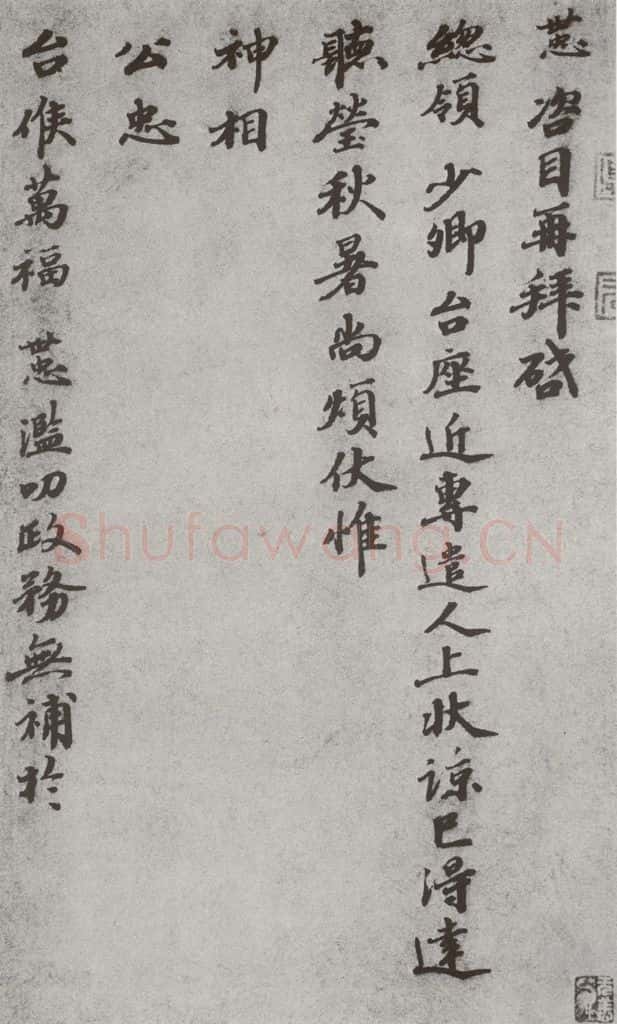 咨目再拜啓
總領 少卿台座近專遣人上狀諒已得達
聽瑩秋暑尚煩伏惟
神相
公忠
台候萬福 濫叨政務無補於
Shufawang.CN